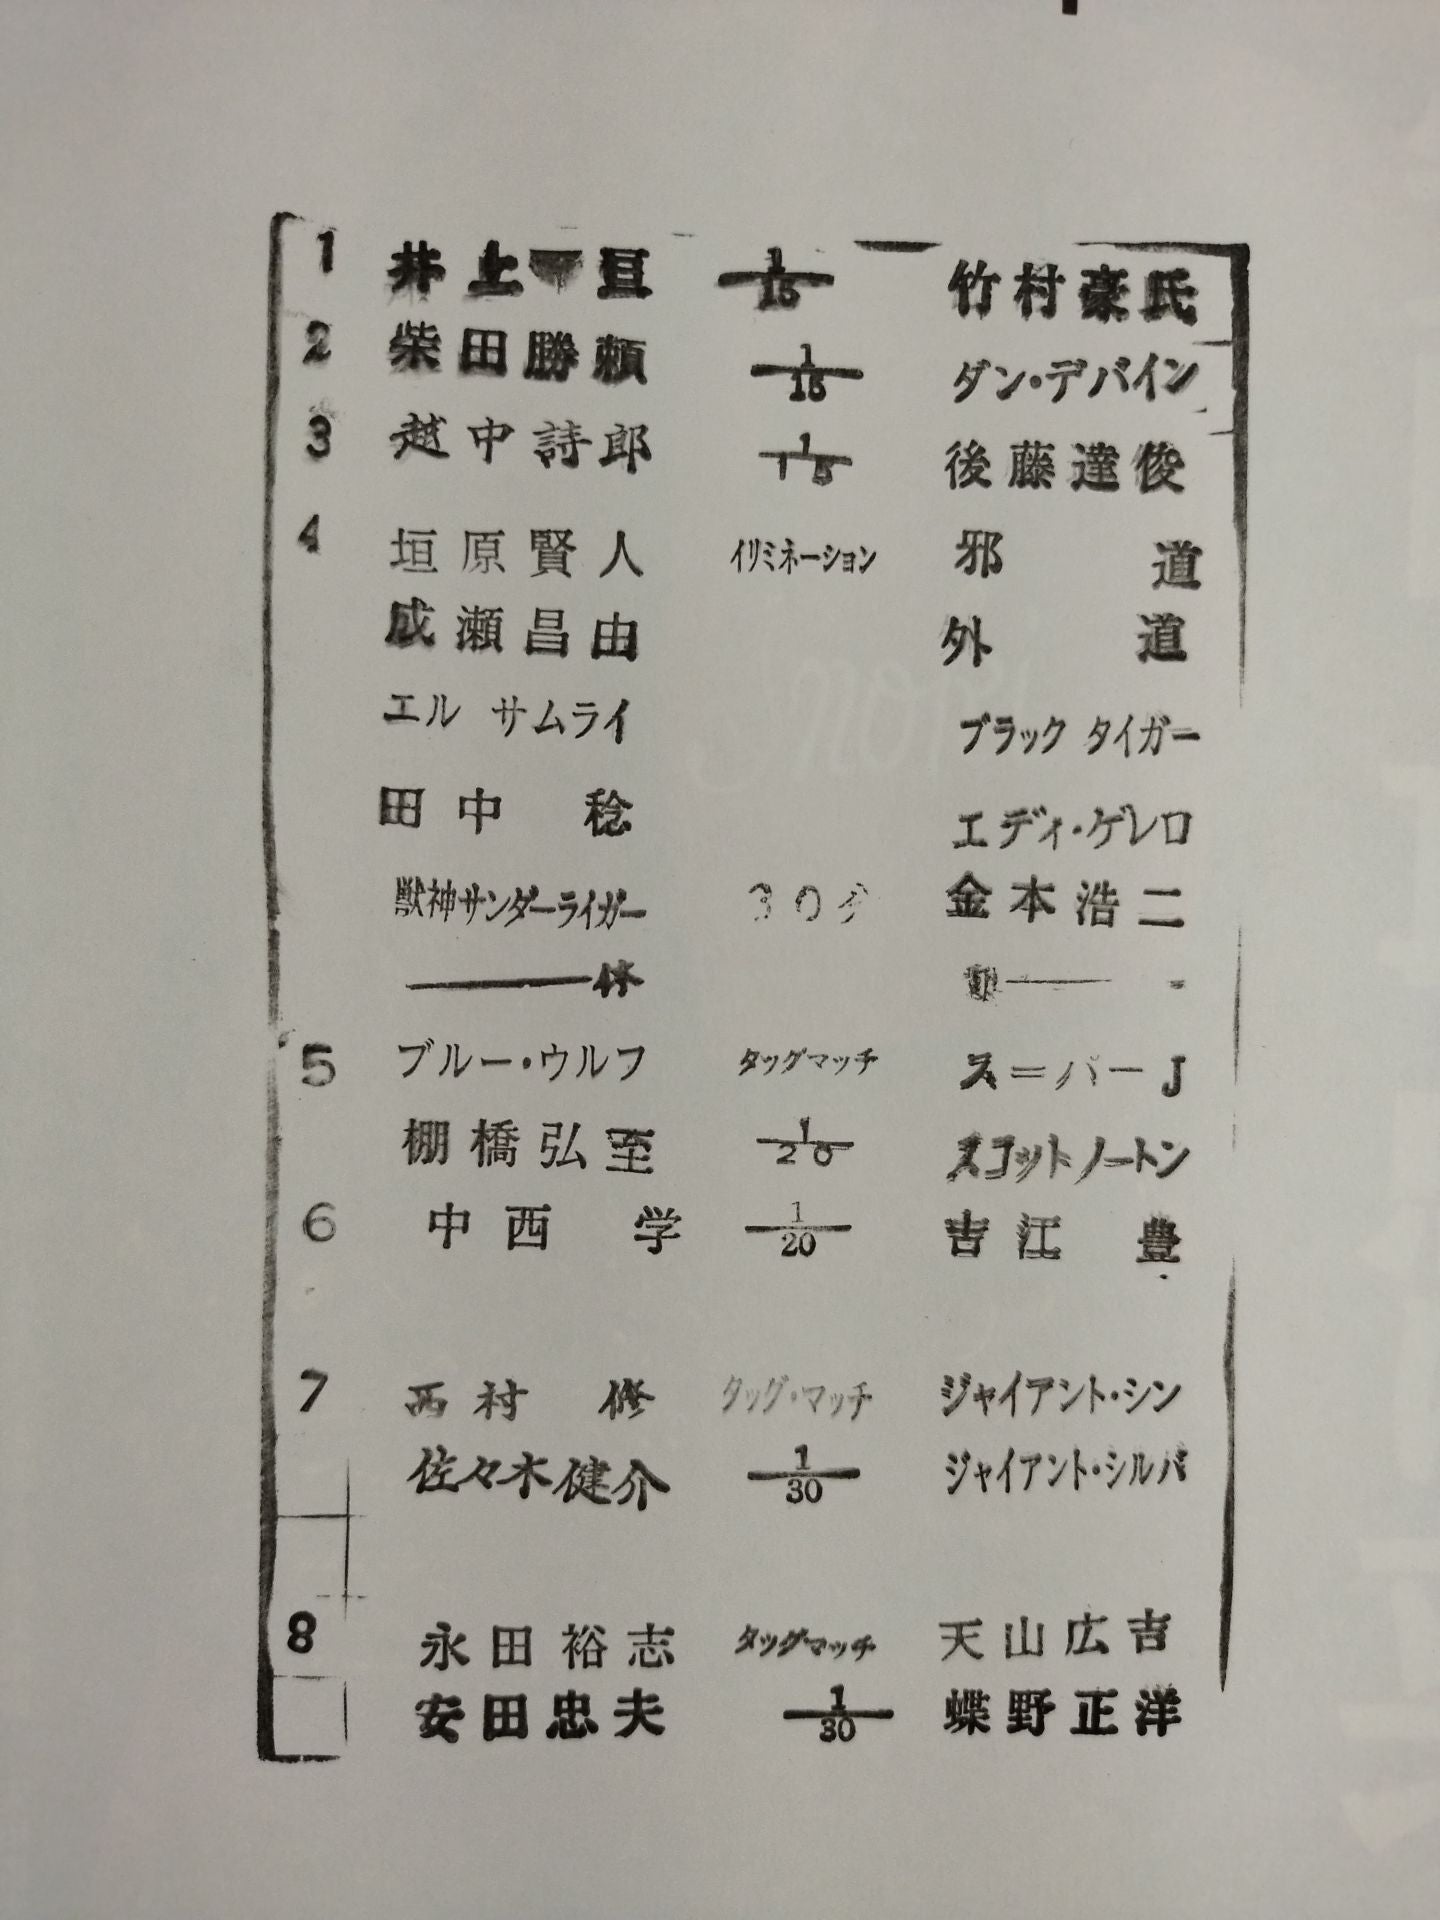 1 井上 亘 1/15 竹村豪氏
2 柴田勝頼 1/15 ダン・デバイン
3 越中詩郎 1/15 後藤達俊
4 垣原賢人 イリミネーション 邪道
成瀬昌由 外道
エル サムライ ブラック タイガー
田中 稔 エディ・ゲレロ
獣神サンダーライガー 30分 金本浩二
――休 ――
5 ブルー・ウルフ タッグマッチ スーパーJ
棚橋弘至 1/20 スコットノートン
6 中西 学 1/20 吉江 豊
7 西村 修 タッグ・マッチ ジャイアント・シン
佐々木健介 1/30 ジャイアント・シルバ
8 永田裕志 タッグマッチ 天山広吉
安田忠夫 1/30 蝶野正洋